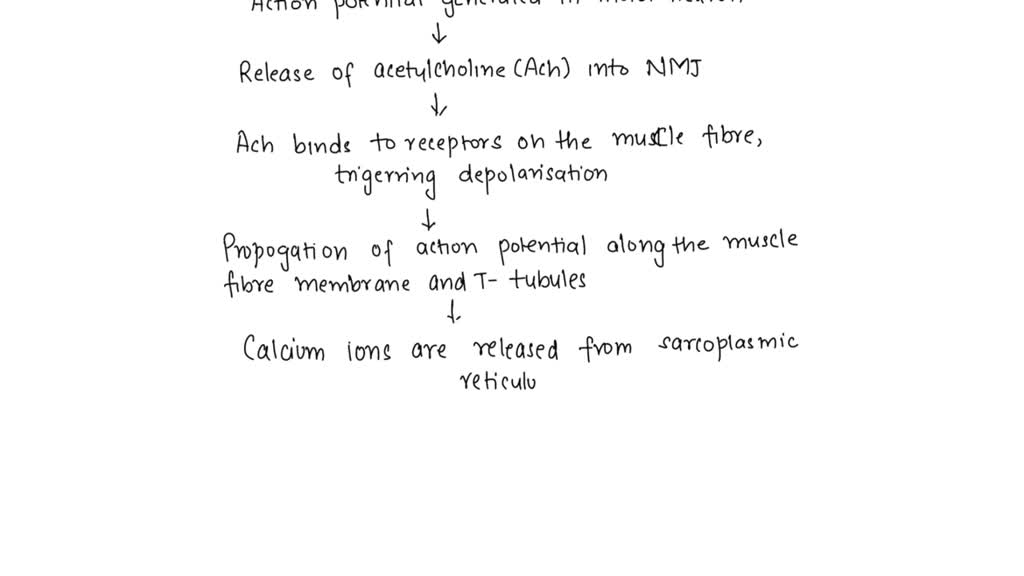 Action potential generated in motor neuron
↓
Release of acetylcholine (Ach) into NMJ
↓
Ach binds to receptors on the muscle fibre,
trigerring depolarisation
↓
Propogation of action potential along the muscle
fibre membrane and T- tubules
↓
Calcium ions are released from sarcoplasmic
reticulu